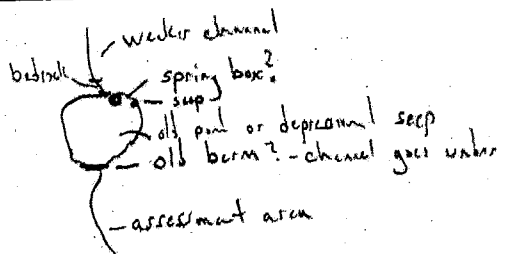 weaker channel
bedrock
spring box?
seep
old pond or depressional seep
old berm? - channel goes under
assessment area